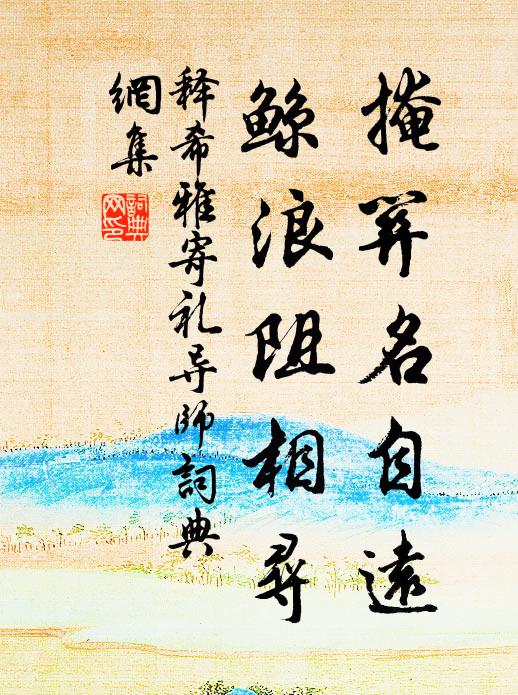 掩關名自遠
鲸浪阻相尋
释希雅寄礼导師詞典
網集
詞典
网印